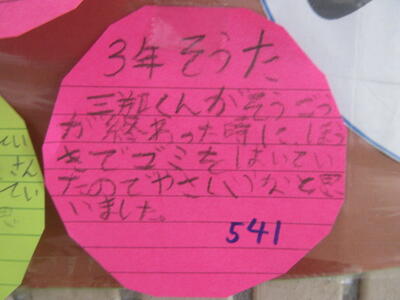 3年そうた
三瓶くんがそうごう
が終わった時に、ほう
きでゴミをはいてい
たのでやさしいなと思
いました。
541
さん
てい
思